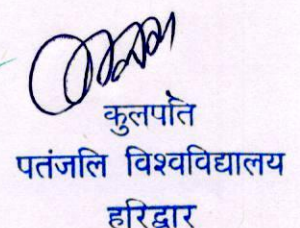 कुलपति
पतंजलि विश्वविद्यालय
हरिद्वार